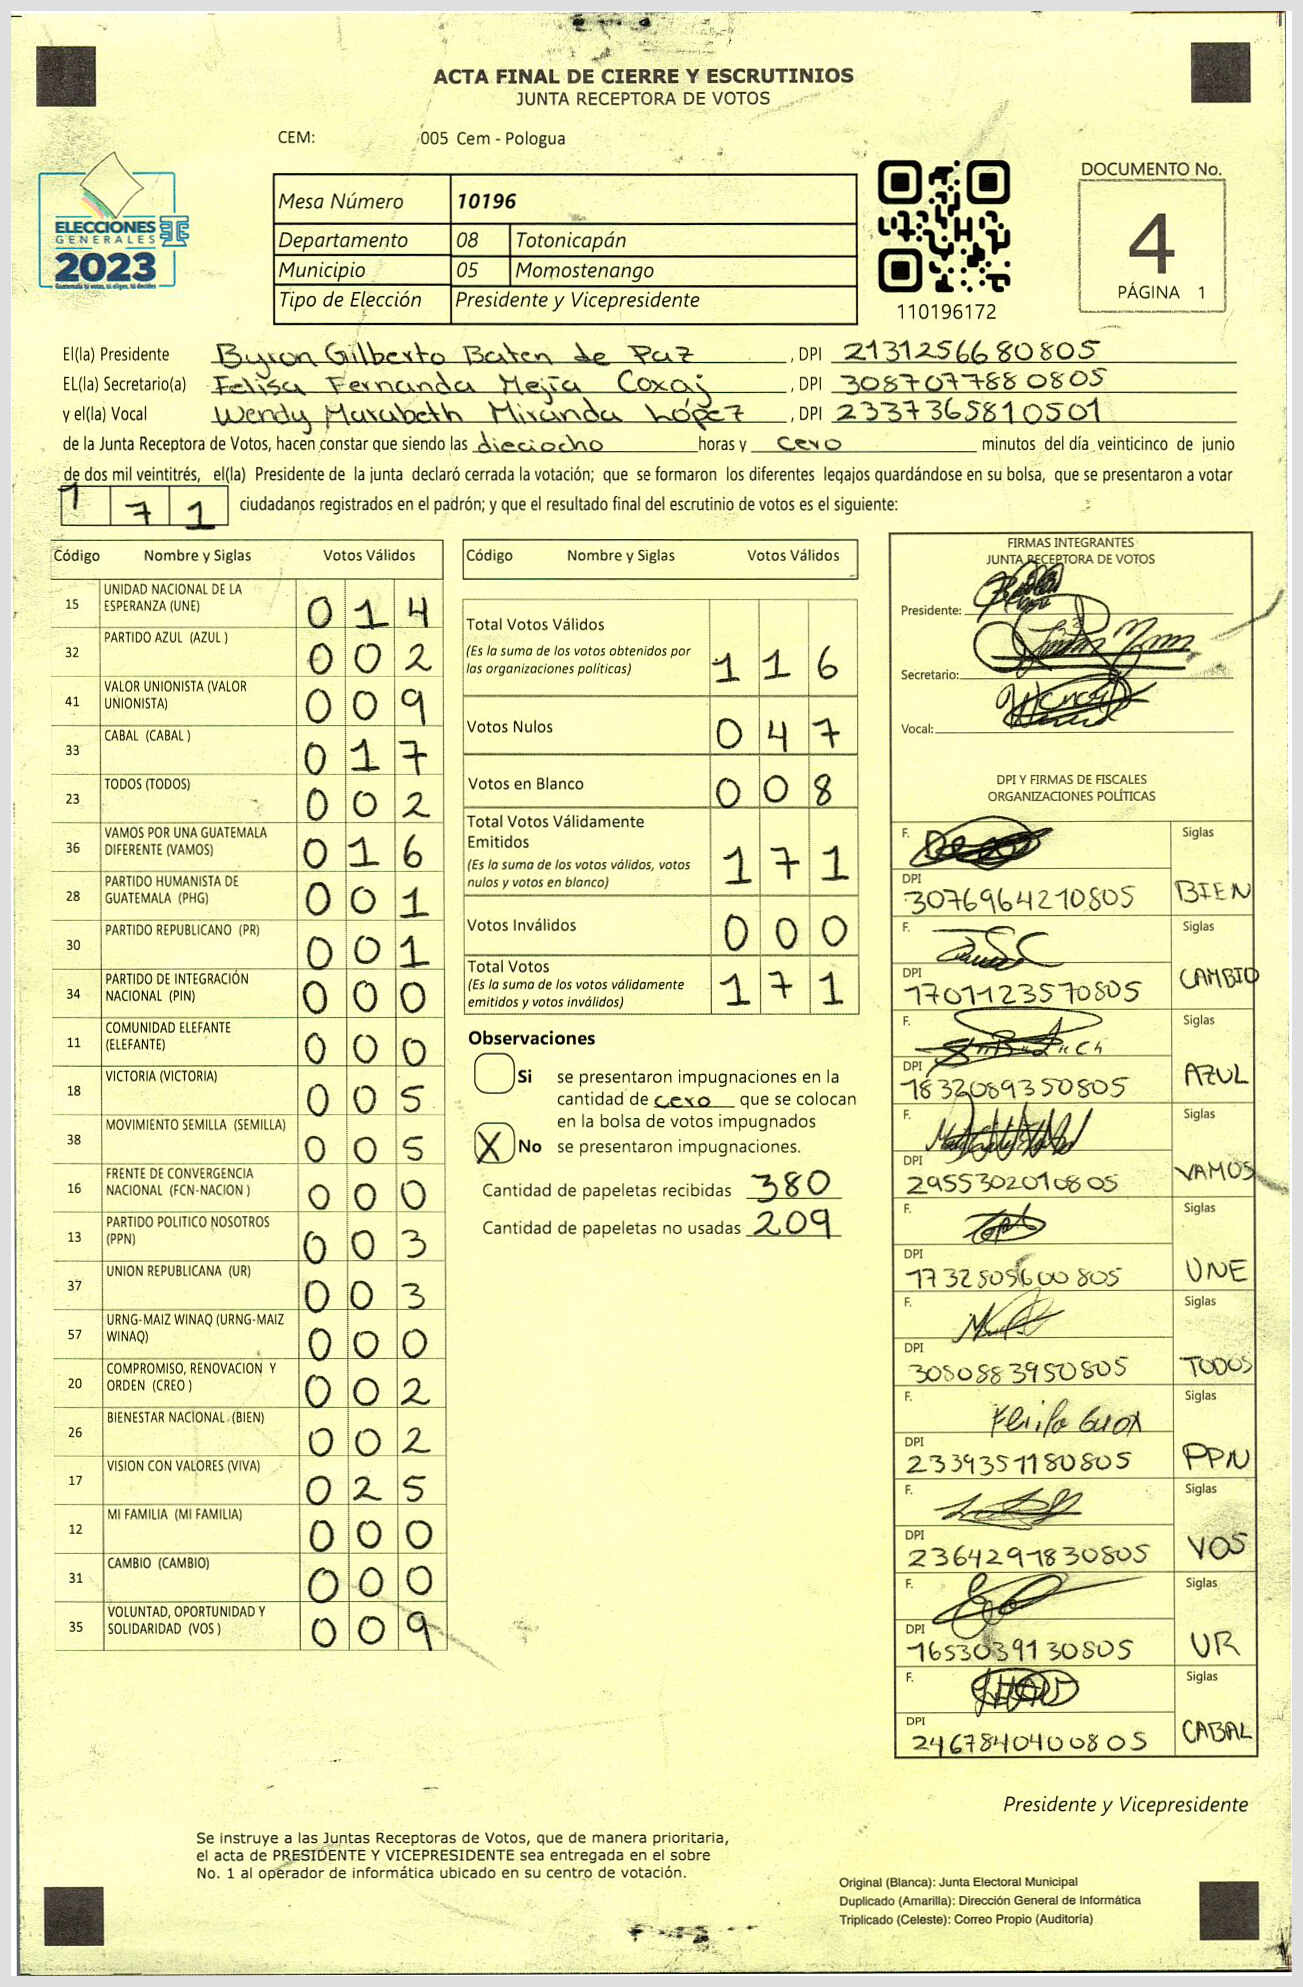 ACTA FINAL DE CIERRE Y ESCRUTINIOS
JUNTA RECEPTORA DE VOTOS
CEM: 005 Cem - Pologua
ELECCIONES
GENERALES
2023
Guatemala tú votas, tú eliges, tú decides
Mesa Número 10196
Departamento 08 Totonicapán
Municipio 05 Momostenango
Tipo de Elección Presidente y Vicepresidente
110196172
DOCUMENTO No.
4
PÁGINA 1
El(la) Presidente Byron Gilberto Baten de Paz, DPI 2131256680805
EL(la) Secretario(a) Felisa Fernanda Mejía Coxaj, DPI 3087077880805
y el(la) Vocal Wendy Marabeth Miranda López, DPI 2337365810501
de la Junta Receptora de Votos, hacen constar que siendo las dieciocho horas y cero minutos del día veinticinco de junio
de dos mil veintitrés, el(la) Presidente de la junta declaró cerrada la votación; que se formaron los diferentes legajos guardándose en su bolsa, que se presentaron a votar
1 7 1 ciudadanos registrados en el padrón; y que el resultado final del escrutinio de votos es el siguiente:
Código Nombre y Siglas Votos Válidos
15 UNIDAD NACIONAL DE LA ESPERANZA (UNE) 0 1 4
32 PARTIDO AZUL (AZUL ) 0 0 2
41 VALOR UNIONISTA (VALOR UNIONISTA) 0 0 9
33 CABAL (CABAL ) 0 1 7
23 TODOS (TODOS) 0 0 2
36 VAMOS POR UNA GUATEMALA DIFERENTE (VAMOS) 0 1 6
28 PARTIDO HUMANISTA DE GUATEMALA (PHG) 0 0 1
30 PARTIDO REPUBLICANO (PR) 0 0 1
34 PARTIDO DE INTEGRACIÓN NACIONAL (PIN) 0 0 0
11 COMUNIDAD ELEFANTE (ELEFANTE) 0 0 0
18 VICTORIA (VICTORIA) 0 0 5
38 MOVIMIENTO SEMILLA (SEMILLA) 0 0 5
16 FRENTE DE CONVERGENCIA NACIONAL (FCN-NACION ) 0 0 0
13 PARTIDO POLITICO NOSOTROS (PPN) 0 0 3
37 UNION REPUBLICANA (UR) 0 0 3
57 URNG-MAIZ WINAQ (URNG-MAIZ WINAQ) 0 0 0
20 COMPROMISO, RENOVACION Y ORDEN (CREO ) 0 0 2
26 BIENESTAR NACIONAL (BIEN) 0 0 2
17 VISION CON VALORES (VIVA) 0 2 5
12 MI FAMILIA (MI FAMILIA) 0 0 0
31 CAMBIO (CAMBIO) 0 0 0
35 VOLUNTAD, OPORTUNIDAD Y SOLIDARIDAD (VOS ) 0 0 9
Código Nombre y Siglas Votos Válidos
Total Votos Válidos
(Es la suma de los votos obtenidos por las organizaciones políticas) 1 1 6
Votos Nulos 0 4 7
Votos en Blanco 0 0 8
Total Votos Válidamente Emitidos
(Es la suma de los votos válidos, votos nulos y votos en blanco) 1 7 1
Votos Inválidos 0 0 0
Total Votos
(Es la suma de los votos válidamente emitidos y votos inválidos) 1 7 1
Observaciones
Si se presentaron impugnaciones en la
cantidad de cero que se colocan
en la bolsa de votos impugnados
X No se presentaron impugnaciones.
Cantidad de papeletas recibidas 380
Cantidad de papeletas no usadas 209
FIRMAS INTEGRANTES
JUNTA RECEPTORA DE VOTOS
Presidente:
Secretario:
Vocal:
DPI Y FIRMAS DE FISCALES
ORGANIZACIONES POLÍTICAS
F. Siglas
DPI 3076964210805 BIEN
F. Siglas
DPI 1701123570805 CAMBIO
F. Siglas
DPI 1832089350805 AZUL
F. Siglas
DPI 2955302010805 VAMOS
F. Siglas
DPI 1732505600805 UNE
F. Siglas
DPI 3050883950805 TODOS
F. Siglas
DPI 2339351180805 PPN
F. Siglas
DPI 2364291830805 VOS
F. Siglas
DPI 1653039130805 UR
F. Siglas
DPI 2467840400805 CABAL
Presidente y Vicepresidente
Se instruye a las Juntas Receptoras de Votos, que de manera prioritaria,
el acta de PRESIDENTE Y VICEPRESIDENTE sea entregada en el sobre
No. 1 al operador de informática ubicado en su centro de votación.
Original (Blanca): Junta Electoral Municipal
Duplicado (Amarilla): Dirección General de Informática
Triplicado (Celeste): Correo Propio (Auditoría)